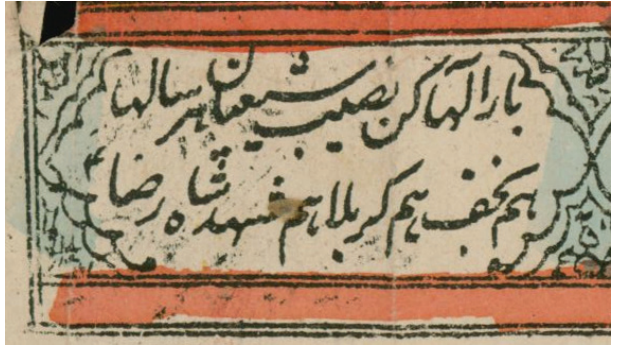 بارالها کن نصیب شیعیان هر سالها
هم نجف هم کربلا هم مشهد شاه رضا